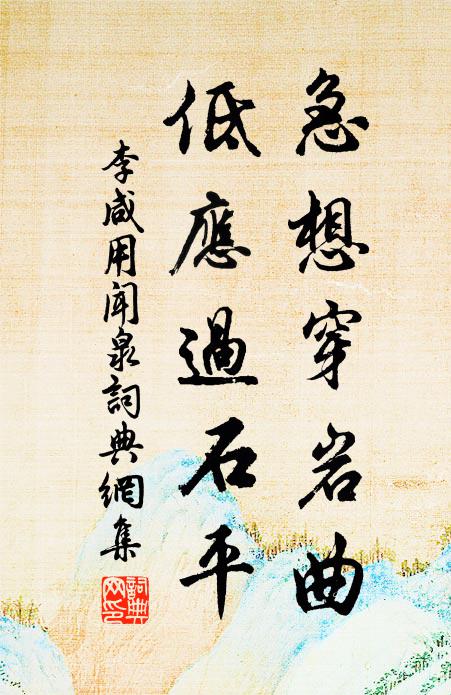 急想穿岩曲
低應過石平
李咸用聞泉詞典網集
詞典网印